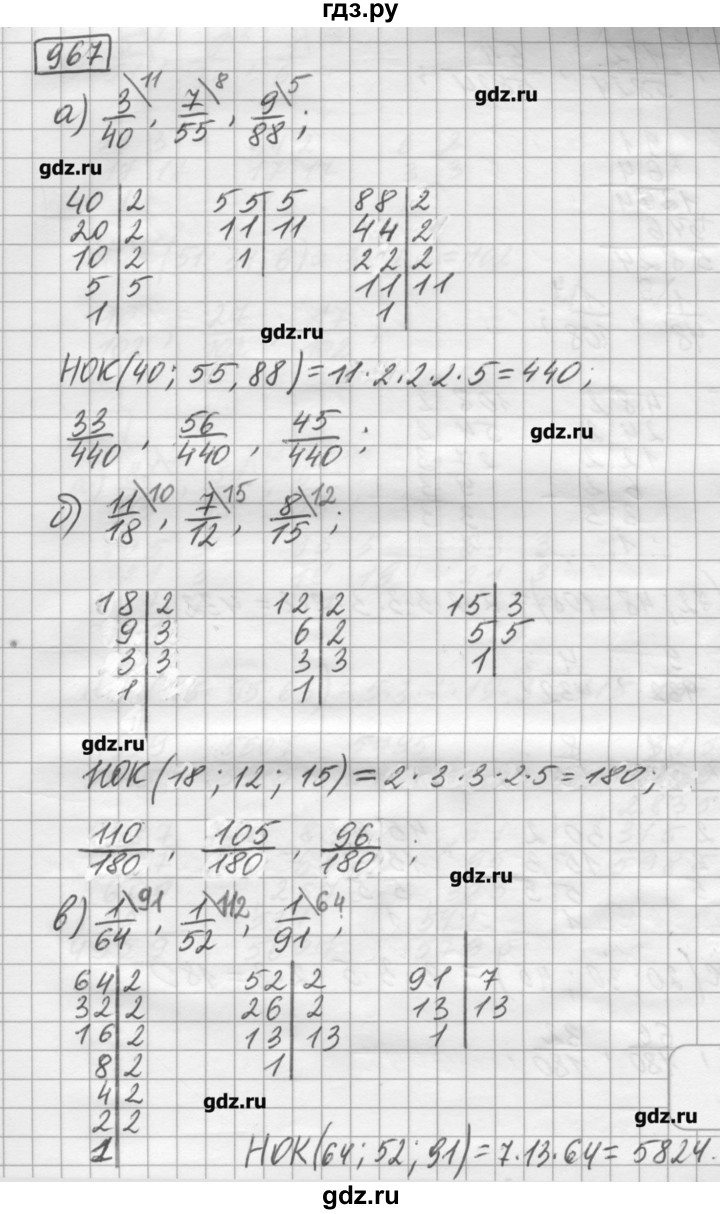 гдз.ру
967
а) 3/40 \11, 7/55 \8, 9/88 \5;
gdz.ru
gdz.ru
40 | 2   55 | 5   88 | 2
20 | 2   11 | 11   44 | 2
10 | 2   1 |   22 | 2
5 | 5   11 | 11
1 |   1 |
gdz.ru
НОК(40; 55, 88) = 11·2·2·2·5 = 440;
33/440, 56/440, 45/440;
gdz.ru
б) 11/18 \10, 7/12 \15, 8/15 \12;
18 | 2   12 | 2   15 | 3
9 | 3   6 | 2   5 | 5
3 | 3   3 | 3   1 |
1 |   1 |
gdz.ru
НОК(18; 12; 15) = 2·3·3·2·5 = 180;
110/180, 105/180, 96/180;
gdz.ru
в) 1/64 \91, 1/52 \112, 1/91 \64;
64 | 2   52 | 2   91 | 7
32 | 2   26 | 2   13 | 13
16 | 2   13 | 13   1 |
8 | 2   1 |
4 | 2
gdz.ru
2 | 2
gdz.ru
1 |   НОК(64; 52; 91) = 7·13·64 = 5824.
gdz.ru